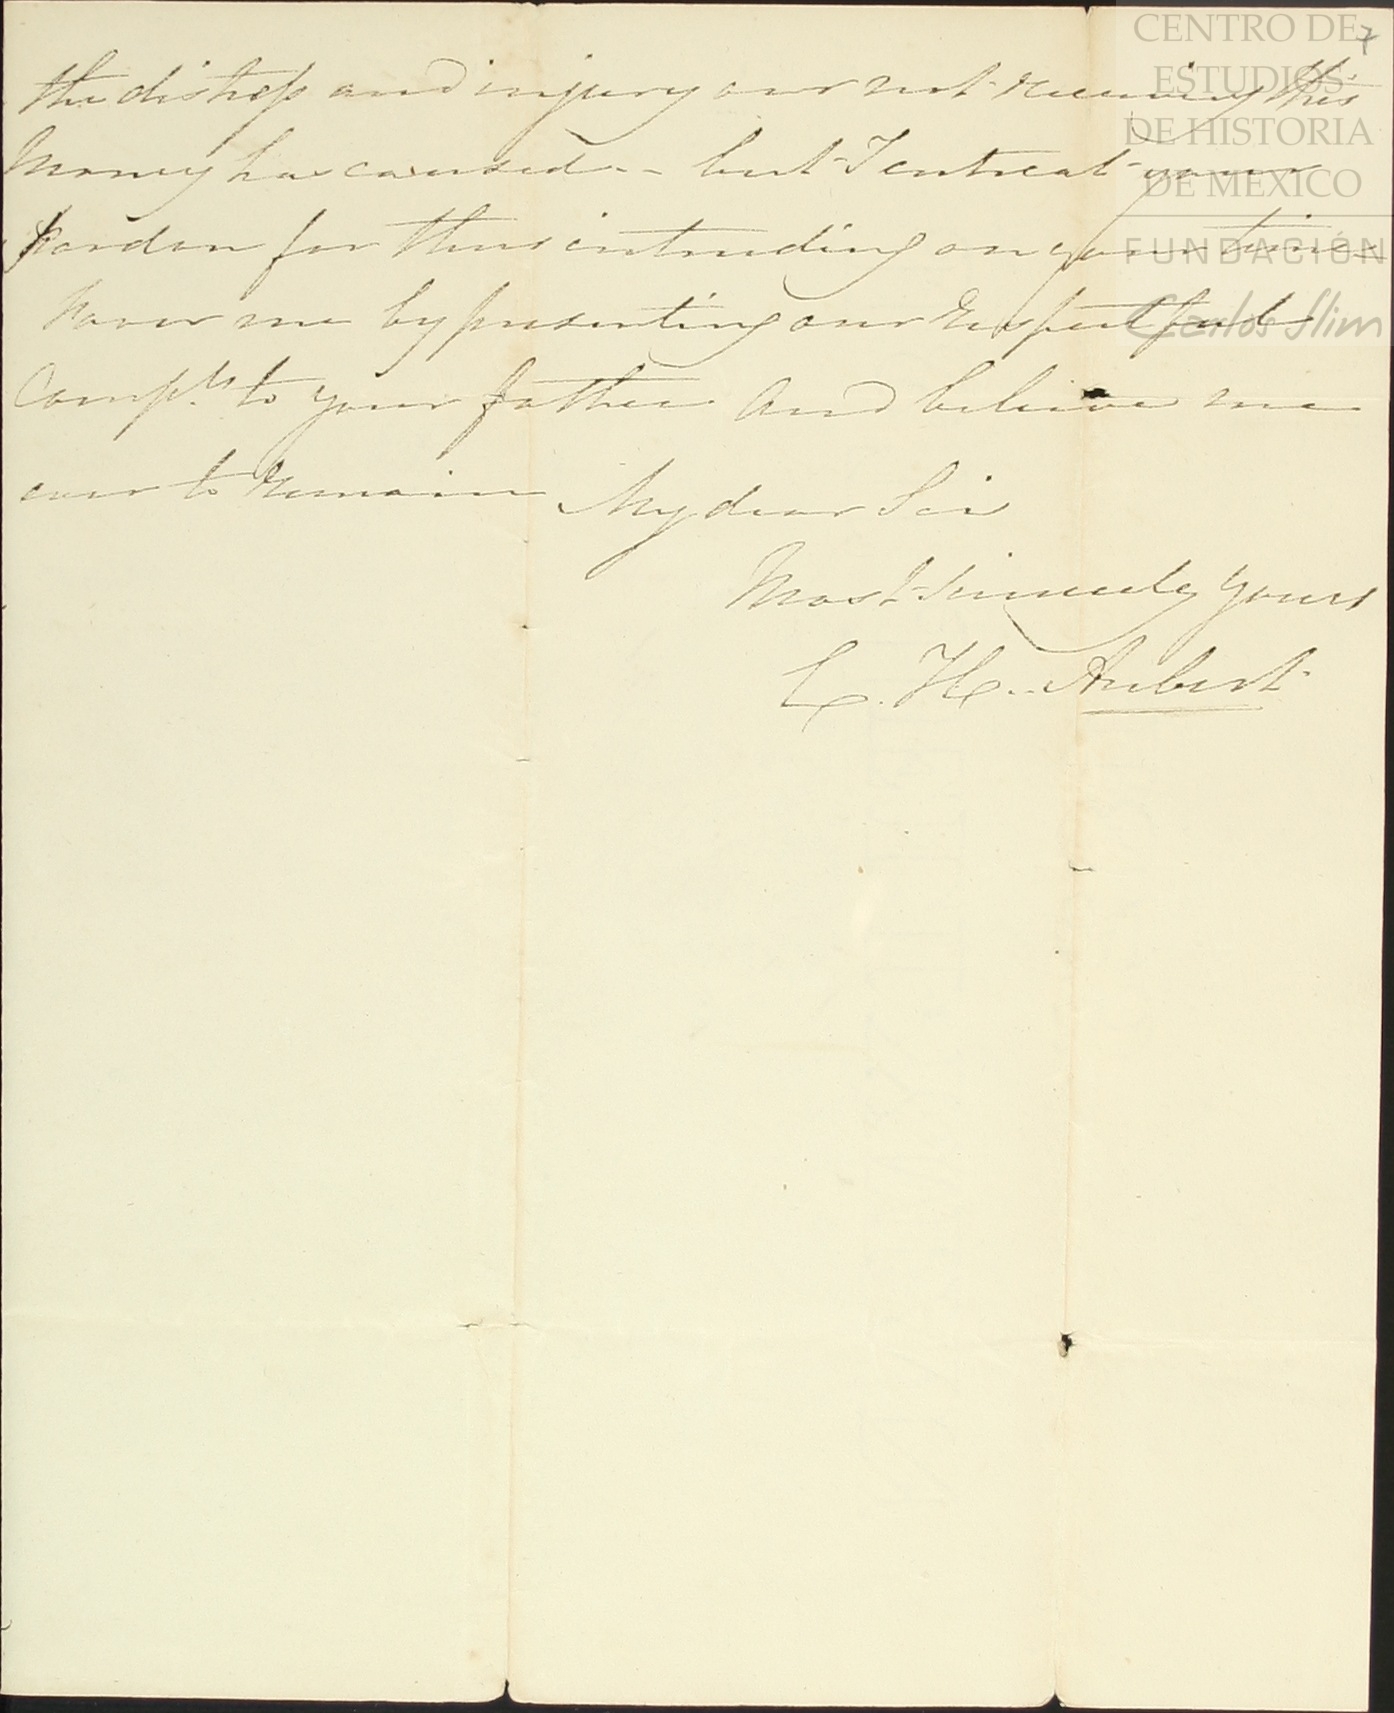 CENTRO DE
ESTUDIOS
DE HISTORIA
DE MEXICO
FUNDACIÓN
Carlos Slim
7
the distress and injury our not receiving this
Money has caused -- but I entreat your
pardon for thus intruding on your time
Favor me by presenting our respectful
Compts. to your father and believe me
ever to remain My dear Sir
Most sincerely yours
C. H.